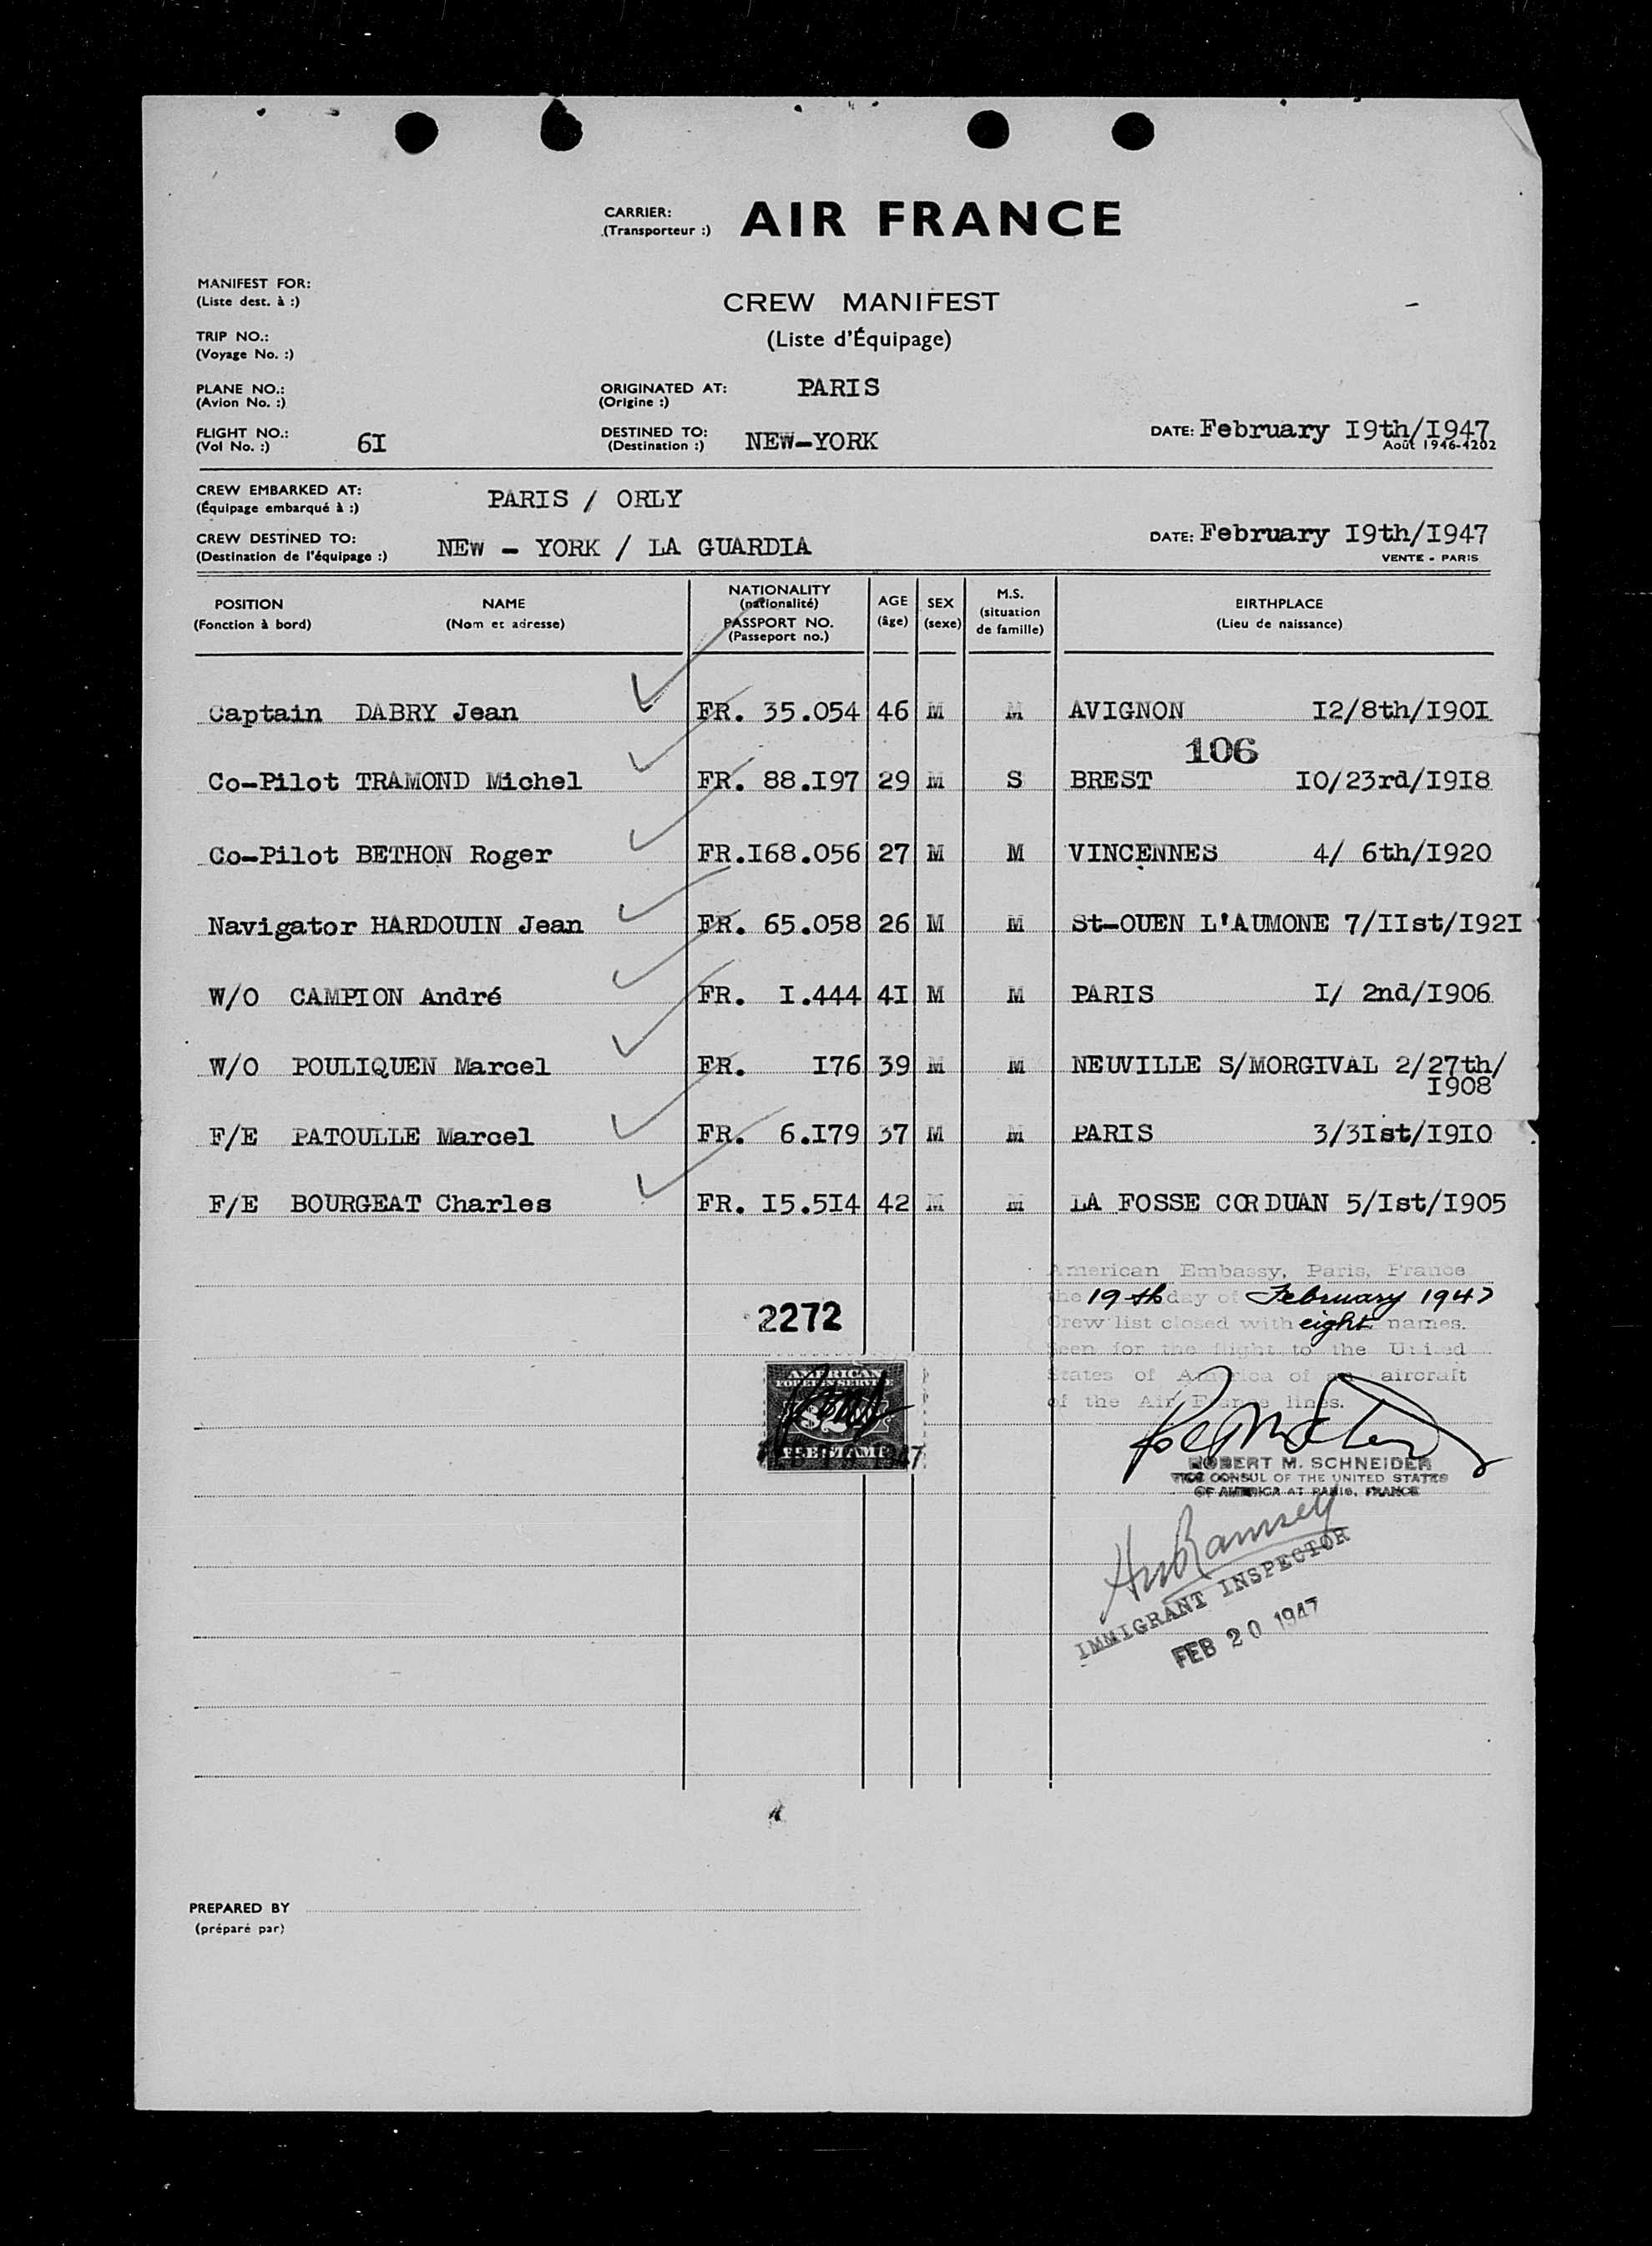 CARRIER: AIR FRANCE
(Transporteur :)
MANIFEST FOR:
(Liste dest. à :)
CREW MANIFEST
(Liste d'Équipage)
TRIP NO.:
(Voyage No. :)
PLANE NO.:
(Avion No. :)
ORIGINATED AT: PARIS
(Origine :)
FLIGHT NO.: 6I
(Vol No. :)
DESTINED TO: NEW-YORK
(Destination :)
DATE: February I9th/I947
Août 1946-4202
CREW EMBARKED AT: PARIS / ORLY
(Équipage embarqué à :)
CREW DESTINED TO: NEW - YORK / LA GUARDIA
(Destination de l'équipage :)
DATE: February I9th/I947
VENTE - PARIS
POSITION NAME NATIONALITY AGE SEX M.S. BIRTHPLACE
(Fonction à bord) (Nom et adresse) (nationalité) PASSPORT NO. (Passeport no.) (âge) (sexe) (situation de famille) (Lieu de naissance)
Captain DABRY Jean FR. 35.054 46 M M AVIGNON I2/8th/I90I
106
Co-Pilot TRAMOND Michel FR. 88.I97 29 M S BREST I0/23rd/I9I8
Co-Pilot BETHON Roger FR.I68.056 27 M M VINCENNES 4/ 6th/I920
Navigator HARDOUIN Jean FR. 65.058 26 M M St-OUEN L'AUMONE 7/IIst/I92I
W/O CAMPION André FR. I.444 4I M M PARIS I/ 2nd/I906
W/O POULIQUEN Marcel FR. I76 39 M M NEUVILLE S/MORGIVAL 2/27th/
I908
F/E PATOULLE Marcel FR. 6.I79 37 M M PARIS 3/3Ist/I9I0
F/E BOURGEAT Charles FR. I5.5I4 42 M M LA FOSSE CORDUAN 5/Ist/I905
American Embassy, Paris, France
the 19th day of February 1947
Crew list closed with eight names.
Seen for the flight to the United
States of America of an aircraft
of the Air France lines.
2272
AMERICAN
FOREIGN SERVICE
$2
FEE STAMP
ROBERT M. SCHNEIDER
VICE CONSUL OF THE UNITED STATES
OF AMERICA AT PARIS, FRANCE
Ramsey
IMMIGRANT INSPECTOR
FEB 20 1947
PREPARED BY
(préparé par)